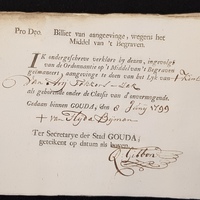 Pro Deo. Billiet van aangevinge, wegens het
Middel van 't Begraven.
IK ondergeschreven verklare by dezen, ingevolge
van de Ordonnantie op 't Middel van 't Begraven
geëmaneert, aangevinge te doen van het Lyk van
als gehorende onder de Classis van d'onvermogende.
Gedaan binnen GOUDA, den 8 Juny 1799
Ter Secretarye der Stad GOUDA;
getekent op datum als boven.